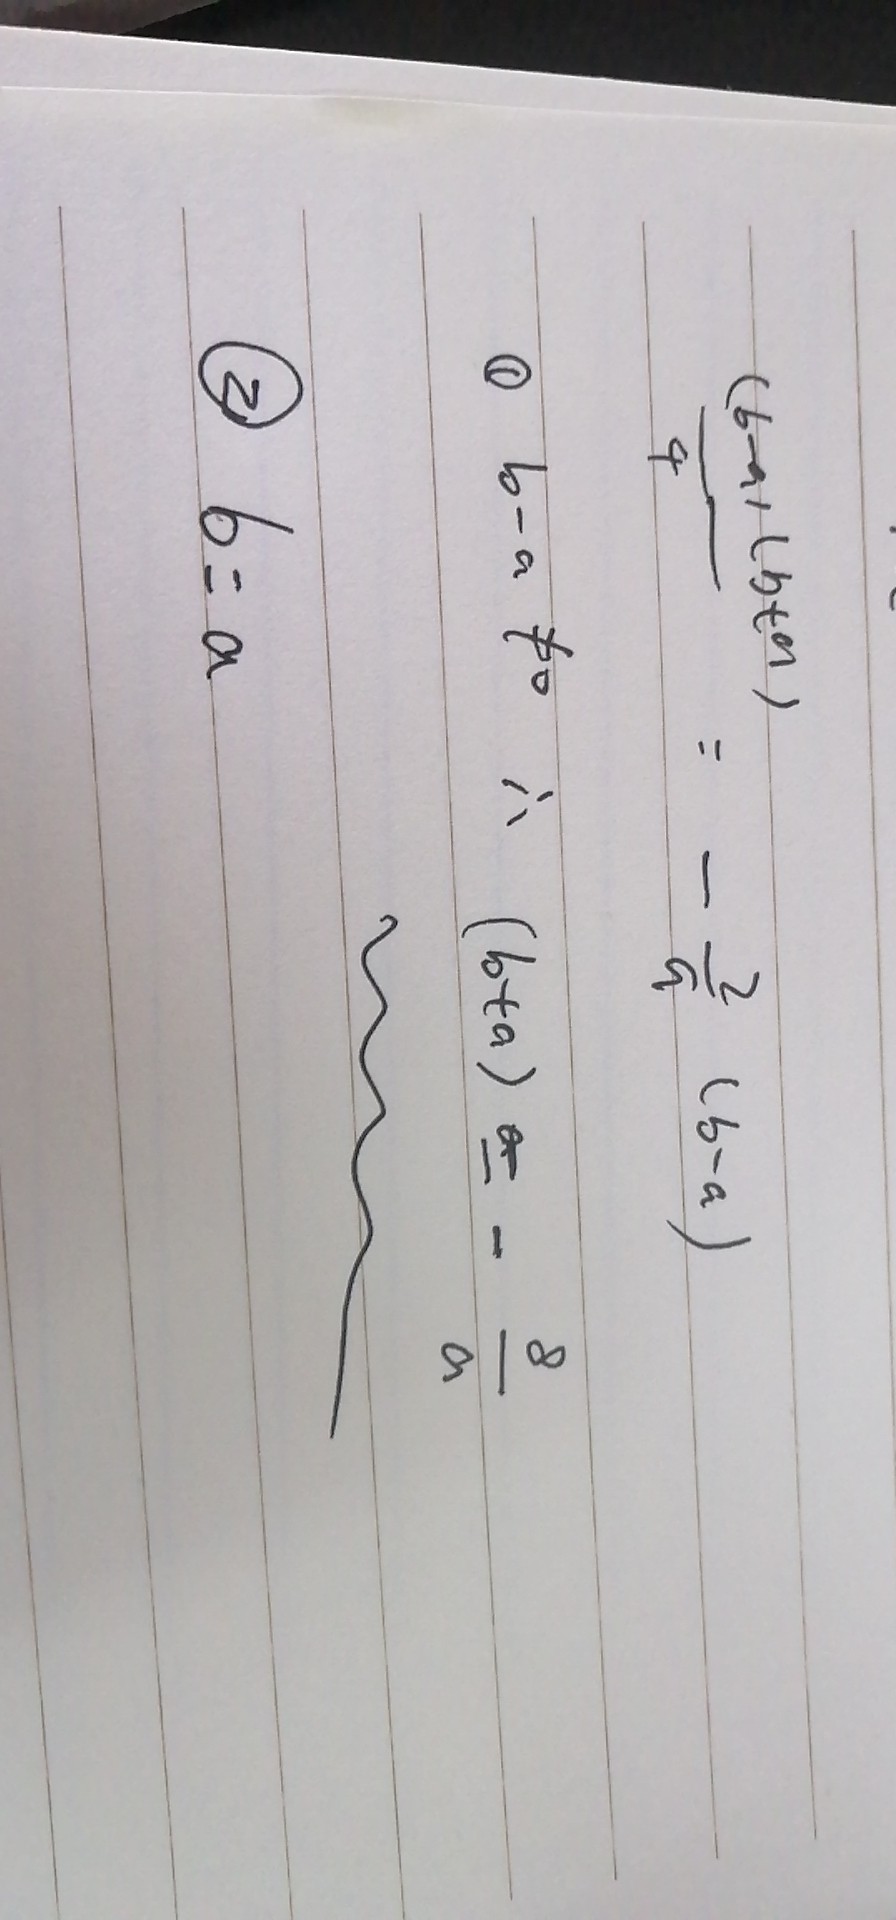 (b-a)(b+a)/4 = - 2/a (b-a)
① b-a ≠0 ∴ (b+a) = - 8/a
② b=a